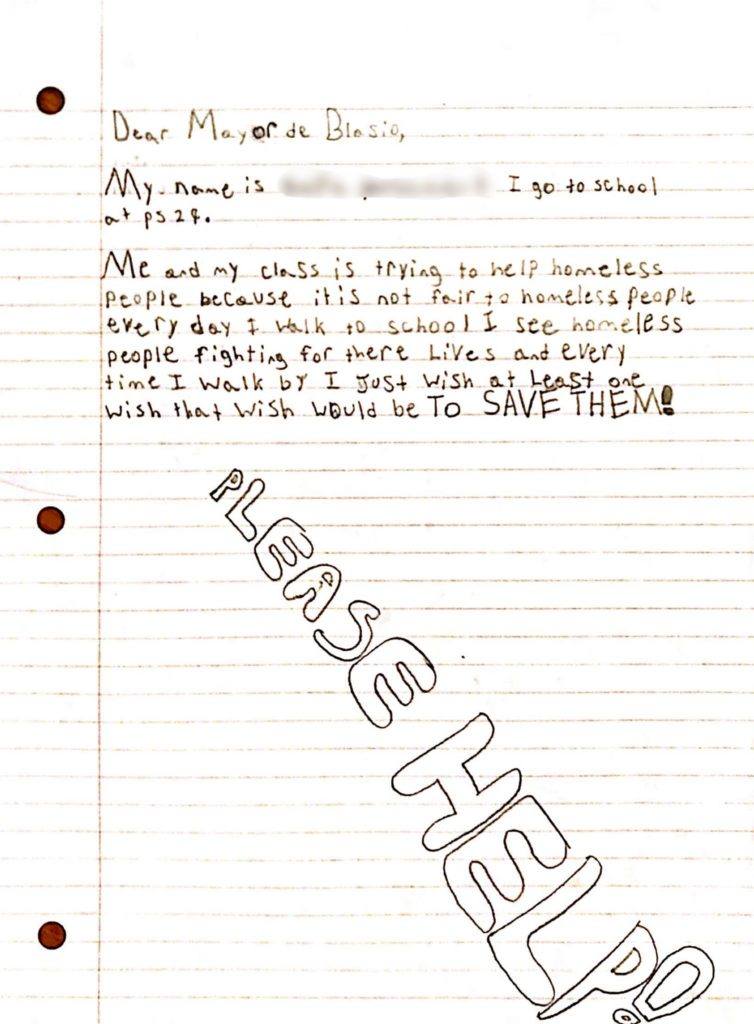 Dear Mayor de Blasio,
My name is I go to school
at ps 29.
Me and my class is trying to help homeless
people because it is not fair to homeless people
every day I walk to school I see homeless
people fighting for there Lives and every
time I walk by I Just wish at Least one
wish that wish would be TO SAVE THEM!
PLEASE HELP!